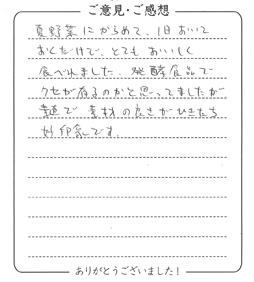 ご意見・ご感想
夏野菜にからめて、1日おいて
おくだけで、とてもおいしく
食べれました。発酵食品で
クセが有るのかと思ってましたが
素材の良さがひきたち
好印象です。
ありがとうございました！